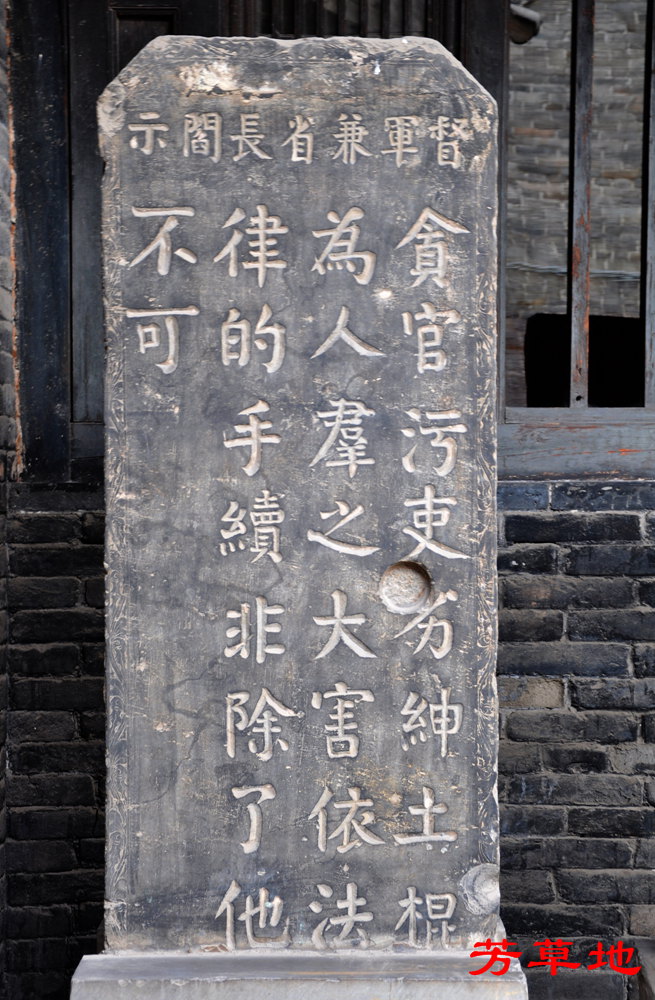 督軍兼省長閻示
貪官污吏劣紳土棍
為人羣之大害依法
律的手續非除了他
不可
芳草地